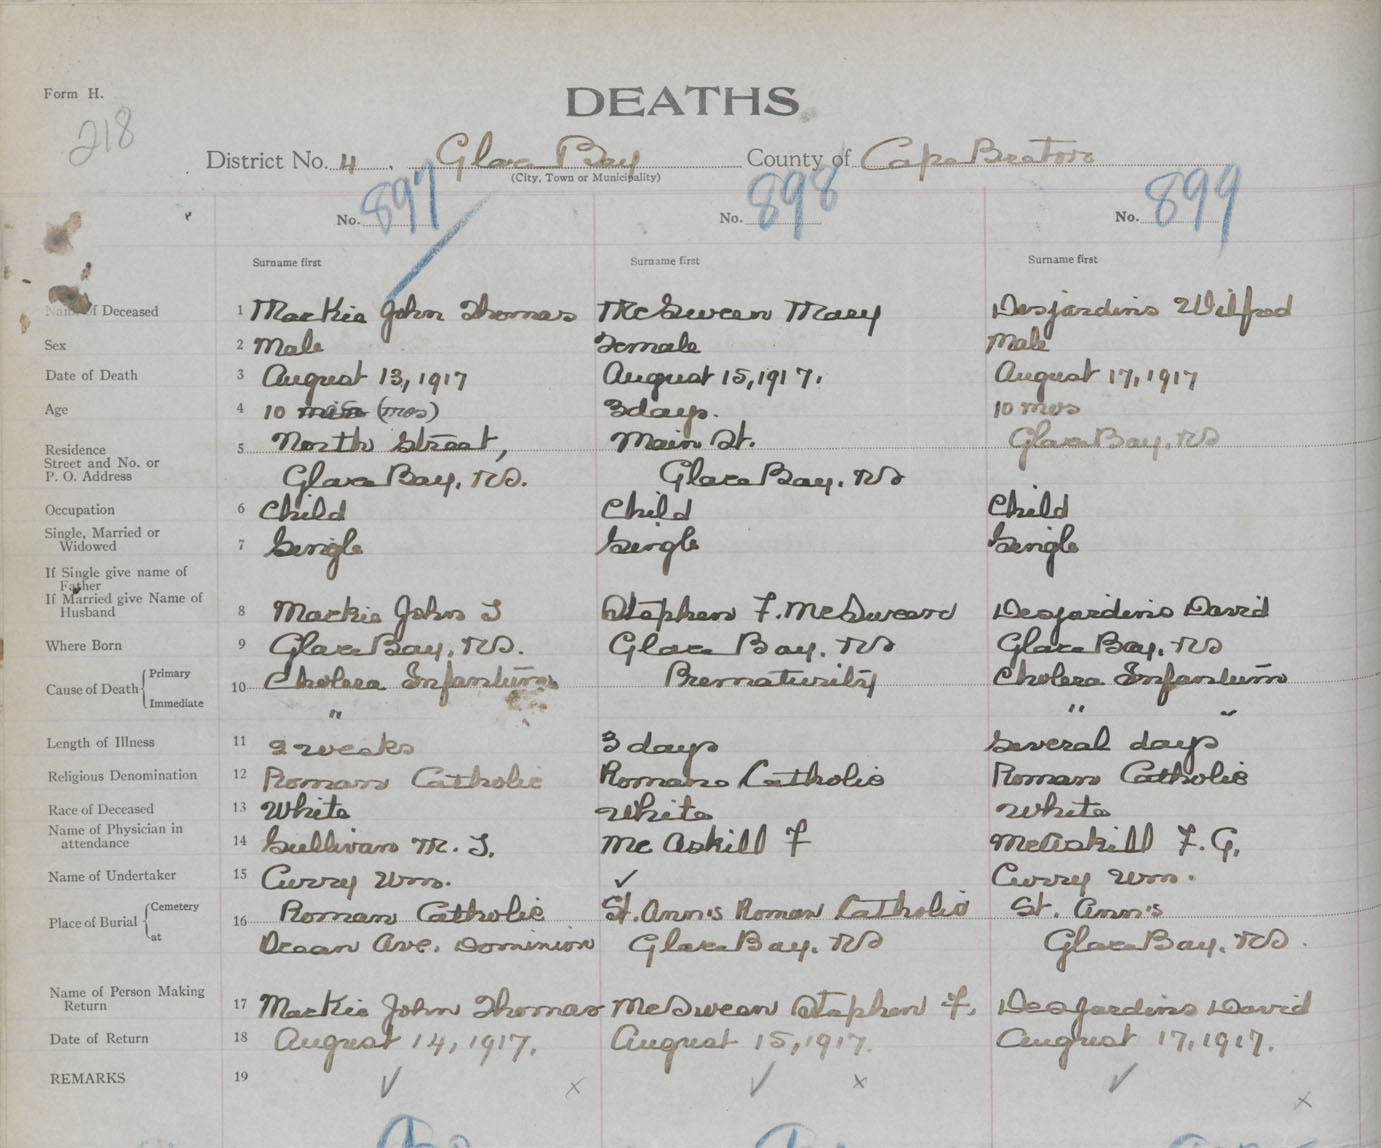 Form H.
218
DEATHS
District No. 4. Glace Bay County of Cape Breton
(City, Town or Municipality)
No. 897 No. 898 No. 899
Surname first Surname first Surname first
Name of Deceased 1 MacKie John Thomas McSween Mary Desjardins Wilfred
Sex 2 Male Female Male
Date of Death 3 August 13, 1917 August 15, 1917. August 17, 1917
Age 4 10 min (mos) 3 days. 10 mos
Residence
Street and No. or
P. O. Address
5 North Street, Main St. Glace Bay, NS
Glace Bay, NS. Glace Bay, NS
Occupation 6 Child Child Child
Single, Married or
Widowed
7 Single Single Single
If Single give name of
Father
If Married give Name of
Husband
8 Mackie John T Stephen F. McSween Desjardins David
Where Born 9 Glace Bay, NS. Glace Bay, NS Glace Bay, NS
Cause of Death Primary
Immediate
10 Cholera Infantum Prematurity Cholera Infantum
" " "
Length of Illness 11 2 weeks 3 days Several days
Religious Denomination 12 Roman Catholic Roman Catholic Roman Catholic
Race of Deceased 13 White White White
Name of Physician in
attendance
14 Sullivan M. T. McAskill F McAskill F. G.
Name of Undertaker 15 Curry Wm. ✓ Curry Wm.
Place of Burial Cemetery
at
16 Roman Catholic St. Ann's Roman Catholic St. Ann's
Ocean Ave. Dominion Glace Bay, NS Glace Bay, NS.
Name of Person Making
Return
17 MacKie John Thomas McSween Stephen F. Desjardins David
Date of Return 18 August 14, 1917. August 15, 1917. August 17, 1917.
REMARKS 19 ✓ x ✓ x ✓ x